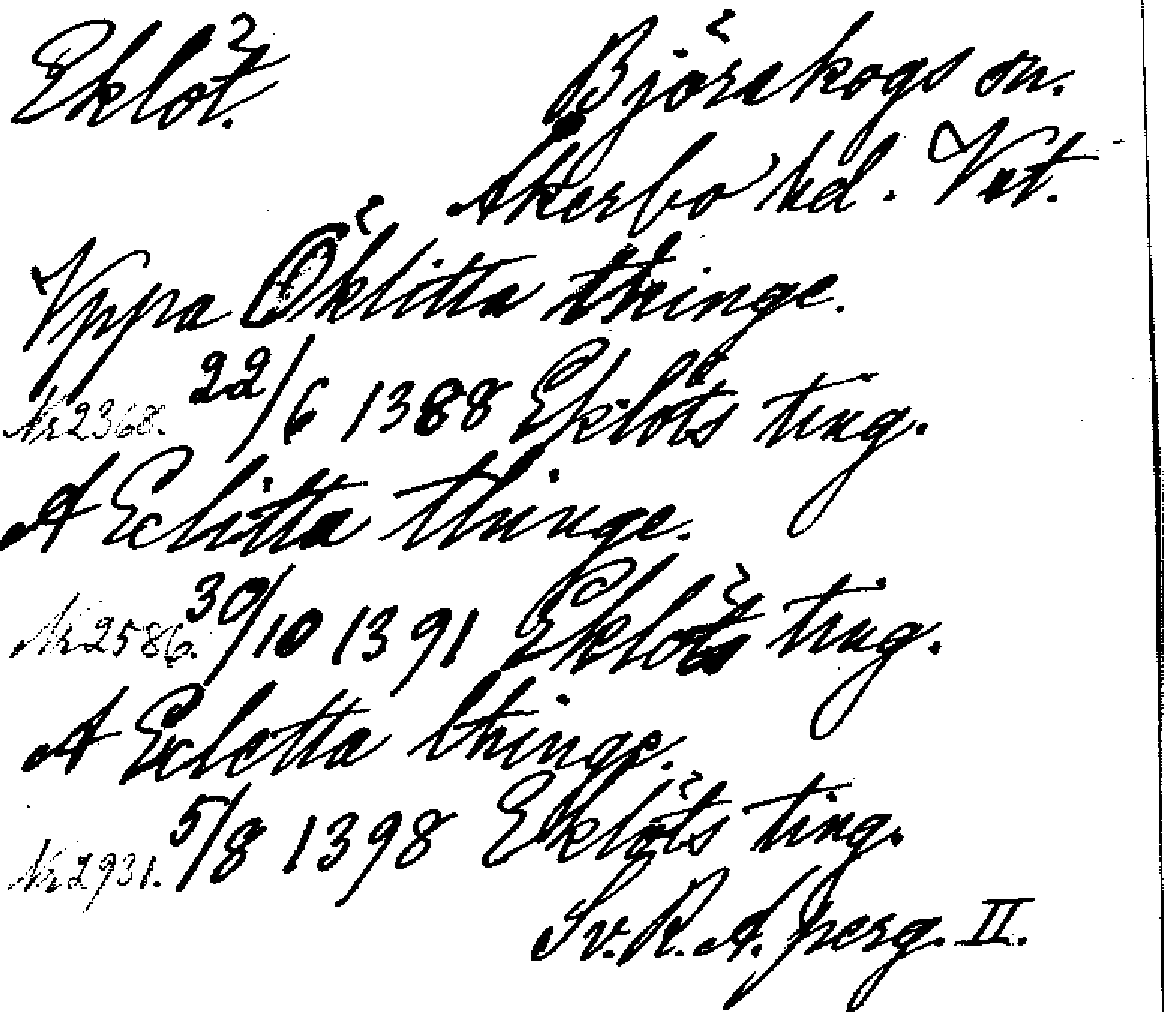 Eklöt. Björskogs sn.
Åkerbo hd. Vet.
Vppa Öklitta thinge.
Nr 2368. 22/6 1388 Eklöts ting.
A Eclitta thinge.
Nr 2586. 30/10 1391 Eklöts ting.
A Ecletta thinge.
Nr 2931. 5/8 1398 Eklöts ting.
Sv. R. A. perg. II.